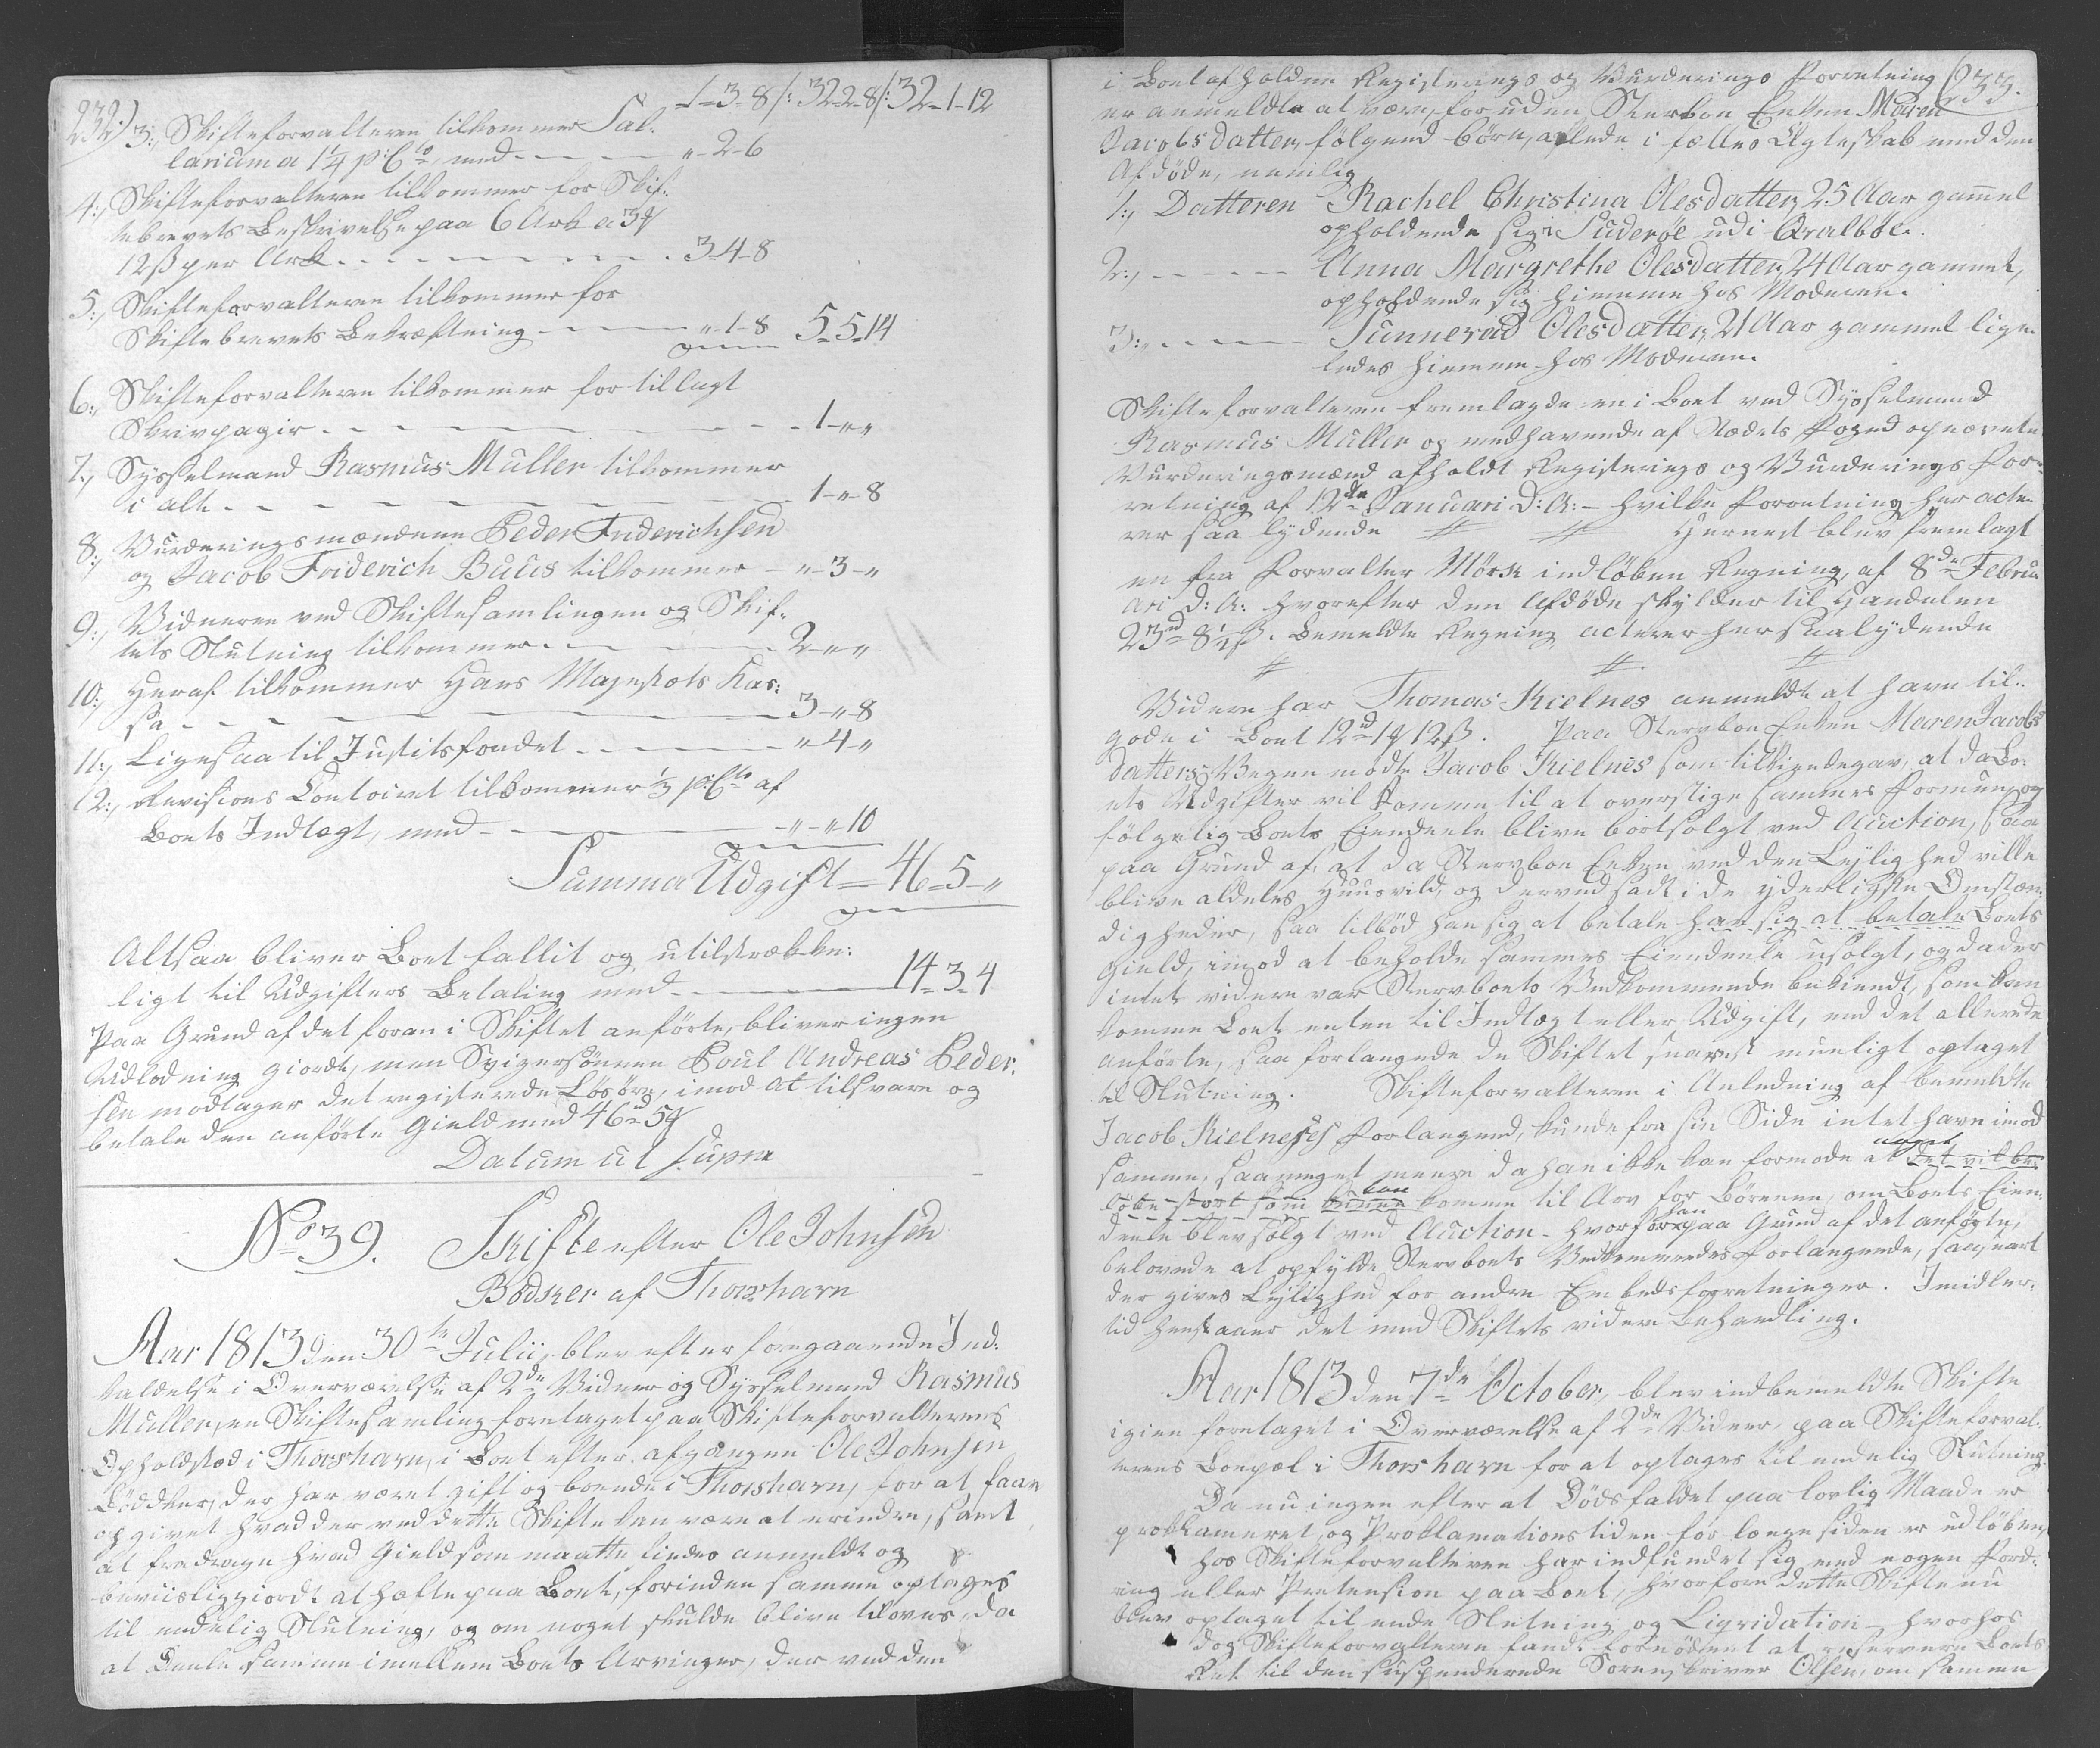 232.)
1-3-8/: 32-2-8/: 32-1-12
3:, Skifteforvalteren tilkommer Sal-
larium a 1¼ p:Cto, med - - - " - 2 - 6
4:, Skifteforvalteren tilkommer for Skif-
tebrevets Beskrivelse paa 6 Ark a 3
12 ß per Ark - - - - - - - 3-4-8
5:, Skifteforvalteren tilkommer for
Skiftebrevets Bekræftning - - - " - 1-8 5-5-14
6:, Skifteforvalteren tilkommer for tillagt
Skrivpapir - - - - - - - 1-"-"
7:, Sysselmand Rasmus Muller tilkommer
i alt - - - - - - - 1-"-8
8:, Vurderingsmændene Peder Friderichsen
og Jacob Friderich Buus tilkommer - "-3-"
9:, Vidnerne ved Skiftesamlingen og Skif-
tets Slutning tilkommer - - - 2-"-"
10:, Heraf tilkommer Hans Majestæts Kas-
sa - - - - - - - 3-"-8
11:, Ligesaa til Justitsfondet - - - - "-4-"
12:, Revisions Contoiret tilkommer ½ p:Cto af
Boets Indtægt, med - - - - "-"-10
Summa Udgift - 46-5-"
Altsaa bliver Boet fallit og utilstrække-
ligt til Udgifters Betaling med - - - 14-3-4
Paa Grund af det foran i Skiftet anførte, bliver ingen
Udlodning giordt, men Svigersønnen Poul Andreas Peder-
sen modtager det registerede Løsøre, imod at tilsvare og
betale den anførte Gield med 46 5
Datum ut supra
No 39. Skifte efter Ole Johnsen
Bødker af Thorshavn
Aar 1813 den 30te Julii, blev efter foregaaende Ind-
kaldelse i Overværelse af 2de Vidner og Sysselmand Rasmus
Muller, en Skiftesamling foretaget paa Skifteforvalterens
Opholdsted i Thorshavn, i Boet efter afgangen Ole Johnsen
Bødker, der har været gift og boende i Thorshavn, for at faae
opgivet hvad der ved dette Skifte kan være at erindre, samt
at fradrage hvad Gield som maatte findes anmeldt og
beviisliggiordt at hæfte paa Boet, forinden samme optages
til endelig Slutning, og om noget skulde blive tilovers, da
at Deele samme imellem Boets Arvinger, der ved den
233.
i Boet afholdne Registrerings og Vurderings Forretning
er anmeldte at være, foruden Sterboe Enken Maren
Jacobsdatter, følgende Børn, avlede i fælles Ægteskab med den
Afdøde, nemlig
1:, Datteren Rachel Christina Olesdatter, 25 Aar gammel
opholdende sig i Suderøe udi Qvalbøe.
2:, - - - - Anna Margrethe Olesdatter, 24 Aar gammel,
opholdende sig hiemme hos Moderen.
3:, - - - - Sunnevad Olesdatter, 21 Aar gammel lige-
ledes hiemme hos Moderen.
Skifteforvalteren fremlagde en i Boet ved Sysselmand
Rasmus Muller og medhavende af Stædets Foged opnævnte
Vurderingsmænd afholdt Registerings og Vurderings For-
retning af 12te Januari d: A: - hvilke Forretning her acte-
rer saa lydende // // Hernæst blev fremlagt
en fra Forvalter Mørk indløben Regning, af 8de Febru-
ari d: A: hvorefter den Afdøde skylder til Handelen
23 8½ ß. Bemeldte Regning acterer her saalydende
// // //
Videre har Thomas Kielnes anmeldt at have til-
gode i Boet 12 1 12 ß. Paa Sterboe Enken Maren Jacobs
datters Vegne mødte Jacob Kielnes som tilkiendegav, at da Bo-
ets Udgifter vil komme til at overstige sammes Formue, og
følgelig Boets Eiendeele blive bortsolgt ved Auction, saa
paa Grund af, at da Sterboe Enken ved den Leylighed ville
blive aldeles Huusvild, og derved sadt i de yderligste Omstæn-
digheder, saa tilbød han sig at betale han sig at betale Boets
Gield, imod at beholde sammes Eiendeele usolgt, og da der
intet videre var Sterboets Vedkommende bekiendt, som kan
komme Boet enten til Indtægt eller Udgift, end det allerede
anførte, saa forlangede de Skiftet snarest mueligt optaget
til Slutning. Skifteforvalteren i Anledning af bemeldte
Jacob Kielneses Forlangende, kunde fra sin Side intet have imod
samme, saa meget meere da han ikke kan formode at noget det vil be-
løbe stort som kunne kan komme til Arv for Børnene, om Boets Eien-
deele blev solgt ved Auction - hvorfor han paa Grund af det anførte,
belovede at opfylde Sterboets Vedkommendes Forlangende, saasnart
der gives Leylighed for andre Embedsforretninger. Imidler-
tid henstaaer det med Skiftets videre Behandling.
Aar 1813 den 7de October, blev indbemeldte Skifte
igien foretaget i Overværelse af 2de Vidner, paa Skifteforval-
terens Boepæl i Thorshavn for at optages til endelig Slutning.
Da nu ingen efter at Dødsfaldet paa lovlig Maade er
proklameret, og Proklamationstiden for længe siden er udløben,
hos Skifteforvalteren har indfundet sig med nogen Ford-
ring eller Prætension paa Boet, hvorfore dette Skifte nu
blev optaget til ende Slutning og Liqvidation - hvorhos
dog Skifteforvalteren fandt fornødent at reservere Boets
Ret til den suspenderede Sorenskriver Olsen, om samme